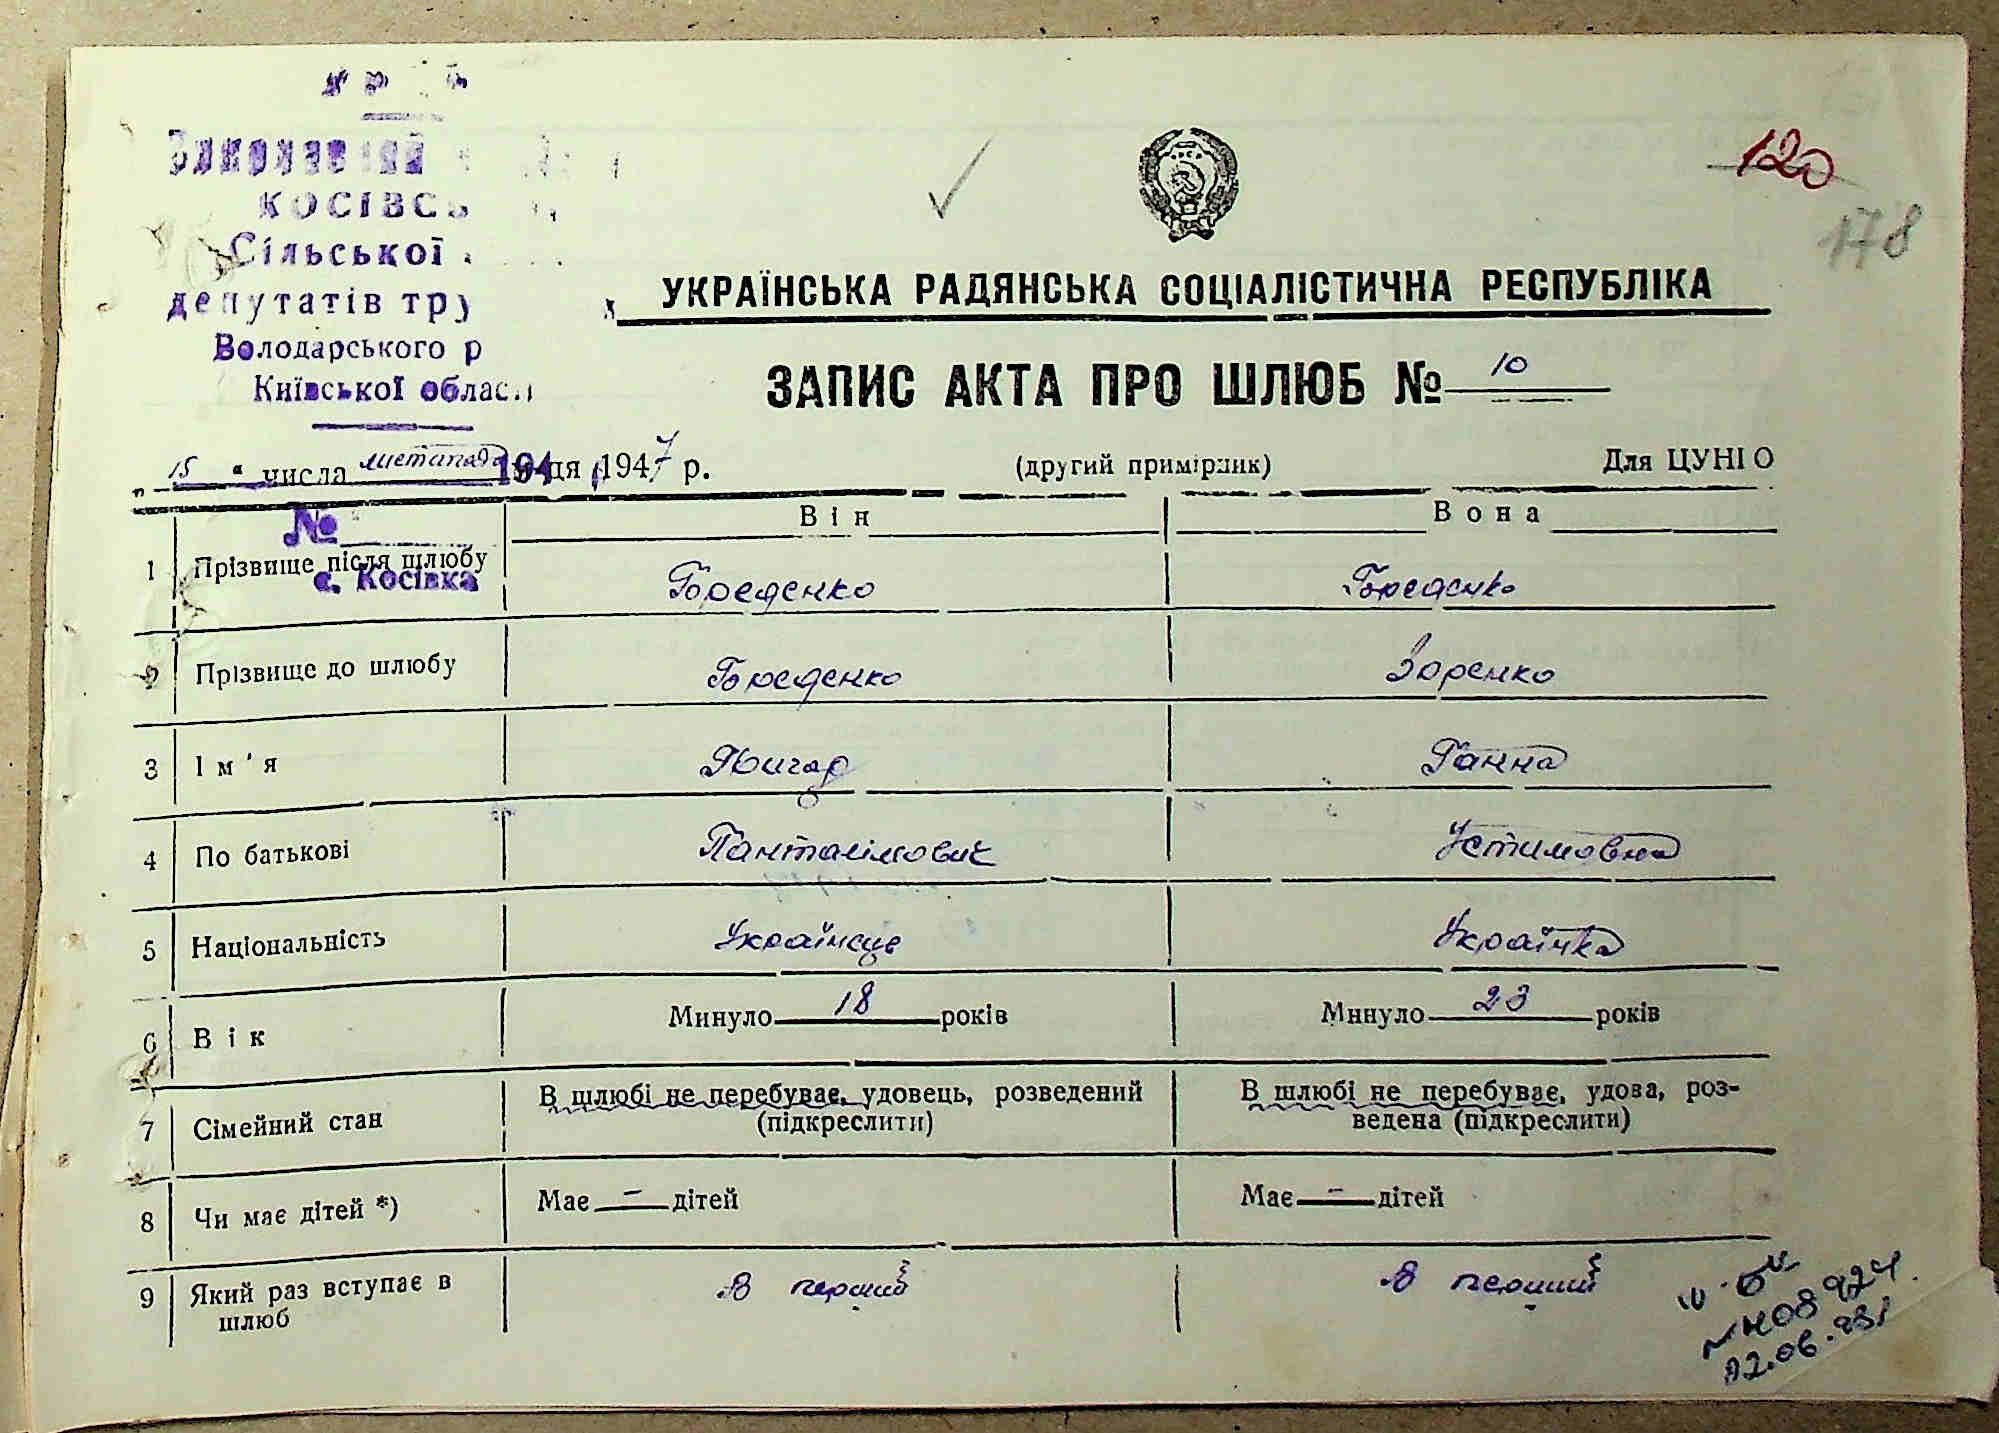 120
178
Виконавчий
КОСІВСЬ
Сільської
депутатів тру
Володарського р
Київської област
УКРАЇНСЬКА РАДЯНСЬКА СОЦІАЛІСТИЧНА РЕСПУБЛІКА
ЗАПИС АКТА ПРО ШЛЮБ № 10
„ 15 “ числа листопада 194 ця 1947 р. (другий примірник) Для ЦУНІО
№
с. Косівка
Він Вона
1 Прізвище після шлюбу
2 Прізвище до шлюбу Зоренко
3 Ім'я Ганна
4 По батькові Пантелімович Устимовна
5 Національність Українець Українка
6 Вік Минуло 18 років Минуло 23 років
7 Сімейний стан В шлюбі не перебуває, удовець, розведений (підкреслити) В шлюбі не перебуває, удова, роз-
ведена (підкреслити)
8 Чи має дітей *) Має — дітей Має — дітей
9 Який раз вступає в шлюб В перший В перший